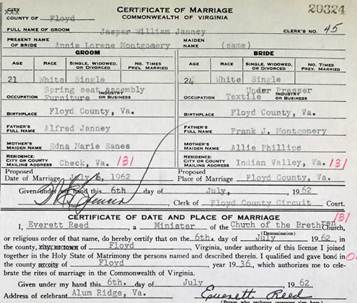 CERTIFICATE OF MARRIAGE 20324
COUNTY OF Floyd COMMONWEALTH OF VIRGINIA
FULL NAME OF GROOM Jasper William Janney CLERK'S NO. 45
PRESENT NAME OF BRIDE Innis Lorene Montgomery MAIDEN NAME (same)
GROOM BRIDE
AGE RACE SINGLE, WIDOWED, OR DIVORCED NO. TIMES PREV. MARRIED AGE RACE SINGLE, WIDOWED, OR DIVORCED NO. TIMES PREV. MARRIED
21 White Single 24 White Single
Spring seat assembly Under Presser
Furniture INDUSTRY OR BUSINESS Textile INDUSTRY OR BUSINESS
BIRTHPLACE Floyd County, Va. BIRTHPLACE Floyd County, Va.
FATHER'S FULL NAME Alfred Janney FATHER'S FULL NAME Frank J. Montgomery
MOTHER'S MAIDEN NAME Edna Marie Eanes MOTHER'S MAIDEN NAME Allie Phillips
RESIDENCE: CITY OR COUNTY MAILING ADDRESS Check, Va. 131 RESIDENCE: CITY OR COUNTY MAILING ADDRESS Indian Valley, Va. 131
Proposed Date of Marriage July 6, 1962 Proposed Place of Marriage Floyd County, Va.
Given under my hand this 6th. day of July, 1962
Clerk of Floyd County Circuit Court.
CERTIFICATE OF DATE AND PLACE OF MARRIAGE 131
I, Everett Reed a Minister of the Church of the Brethren
or religious order of that name, do hereby certify that on the 6th. day of July 1962, in the
county of Floyd Virginia, under authority of this license I joined
together in the Holy State of Matrimony the persons named and described therein. I qualified and gave bond in
county of Floyd year 1936, which authorizes me to cele-
brate the rites of marriage in the Commonwealth of Virginia.
Given under my hand this 6th. day of July, 1962
Address of celebrant Alum Ridge, Va. Everett Reed